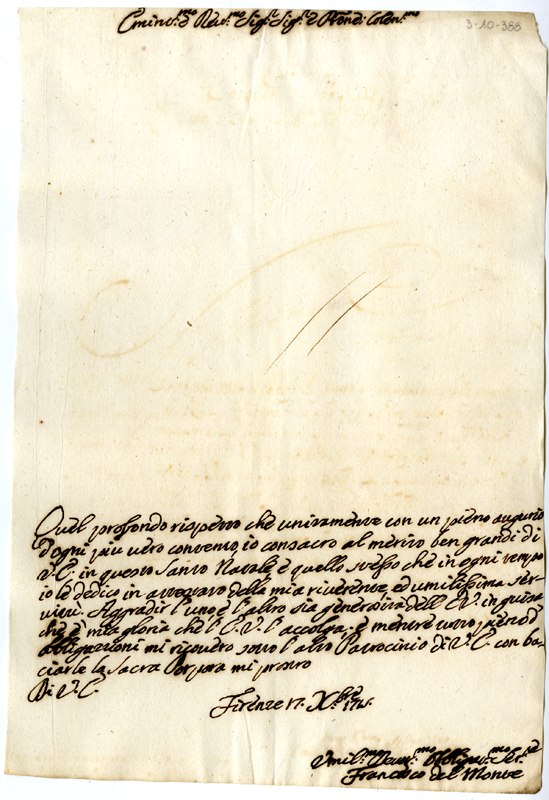 3-10-388
Emin.mo e Rev.mo Sig.r Sig.r e Pron.e Colen.mo
Quel profondo rispetto che unitamente con un pieno augurio
d'ogni piu vero contento, io consacro al merito ben grandi di
V.E. in questo Santo Natale è quello stesso che in ogni tempo
io le dedico in attestato della mia riverente, ed umilissima ser-
vitù. Aggradir l'uno e l'altro sia generosità dell'E.V. in guisa
che è mia gloria che l'E.V. l'accolga; e mentre tutto pieno d'
obligazioni mi ricovero sotto l'alto Patrocinio di V.E. con ba-
ciarle la Sacra Porpora mi protro
Di V.E.
Firenze 17. X.bre 172
Umil.mo Devot.mo Obligat.mo Ser.re
Francesco del Monte